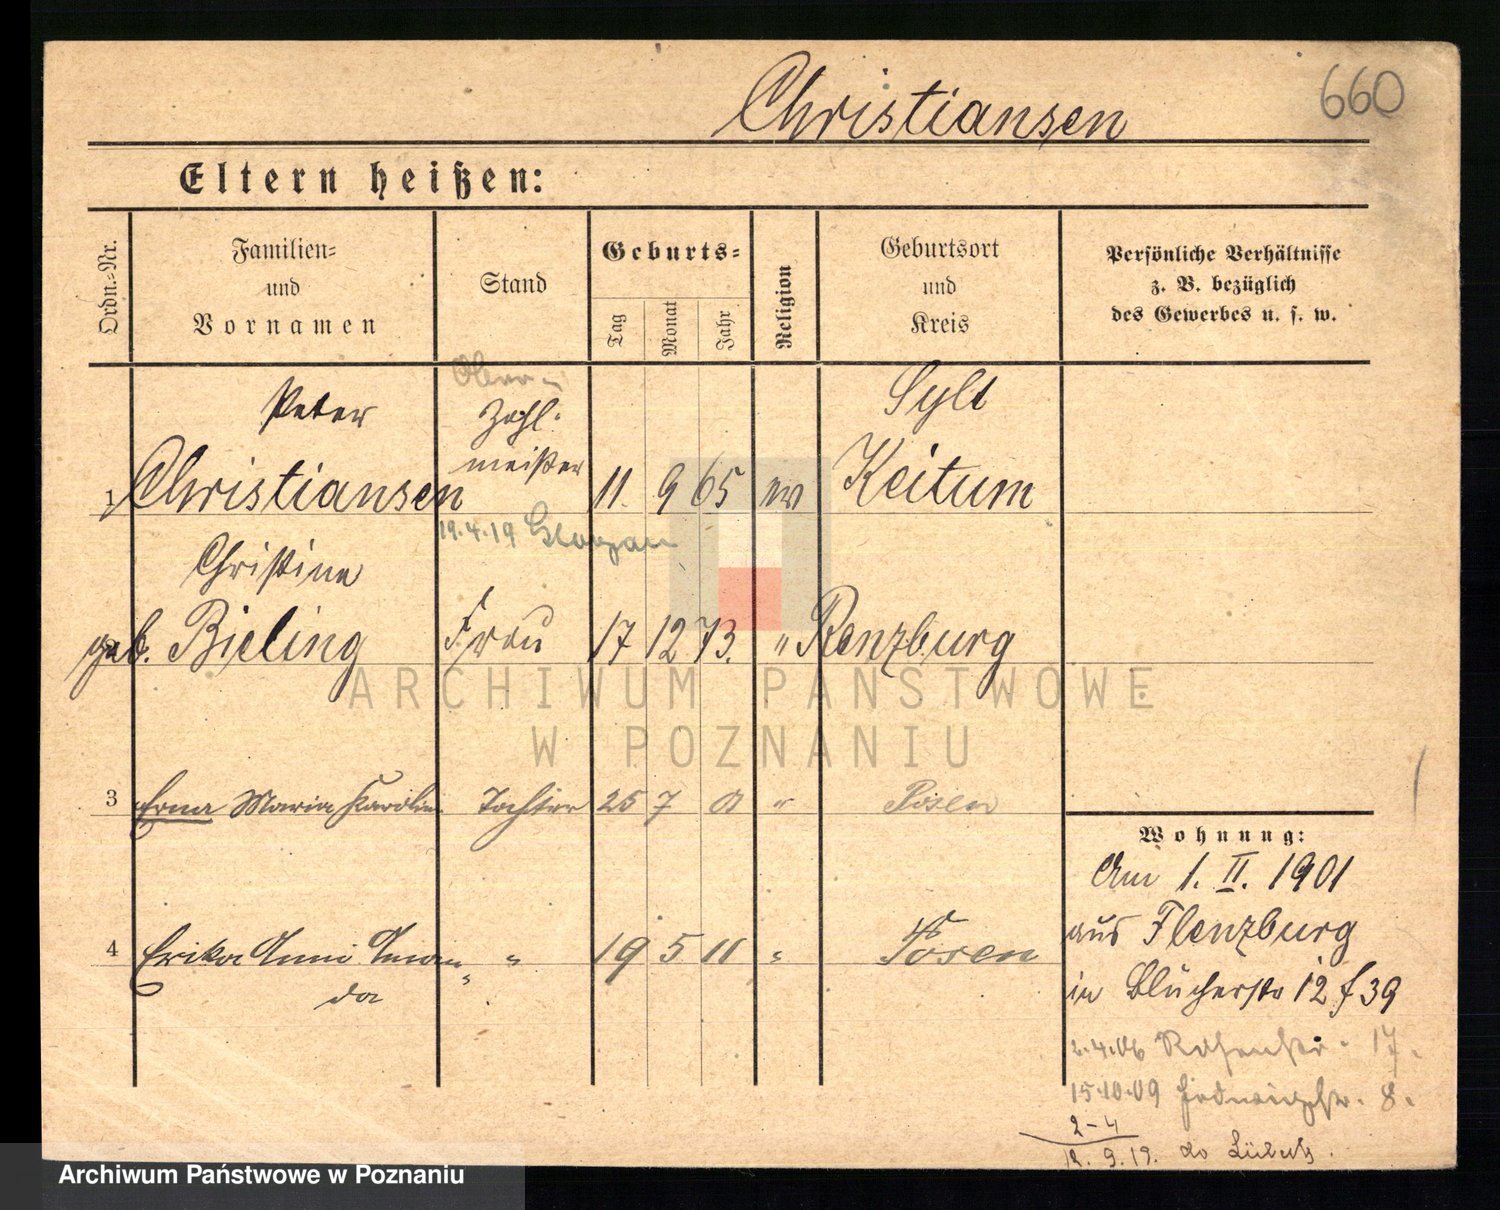 Christiansen
660
Eltern heißen:
Ordn.=Nr.
Familien=
und
Vornamen
Stand
Geburts=
Tag
Monat
Jahr
Religion
Geburtsort
und
Kreis
Persönliche Verhältnisse
z. B. bezüglich
des Gewerbes u. s. w.
Ober-
Peter Zahl- Sylt
meister
1 Christiansen 11. 9 65 ev Keitum
19.4.19
Christine
geb. Bieling Frau 17 12 73. " Renzburg
ARCHIWUM PAŃSTWOWE
W POZNANIU
3 Erna Maria Karolin Tochter 25 7 " Posen
4 Erika Anni Aman- " 19 5 11 " Posen
da "
Wohnung:
Am 1. II. 1901
aus Flenzburg
in Blücherstr 12 f 39
2.4.06 17.
15.10.09 8.
2-4
12.9.19. Lübeck.
Archiwum Państwowe w Poznaniu